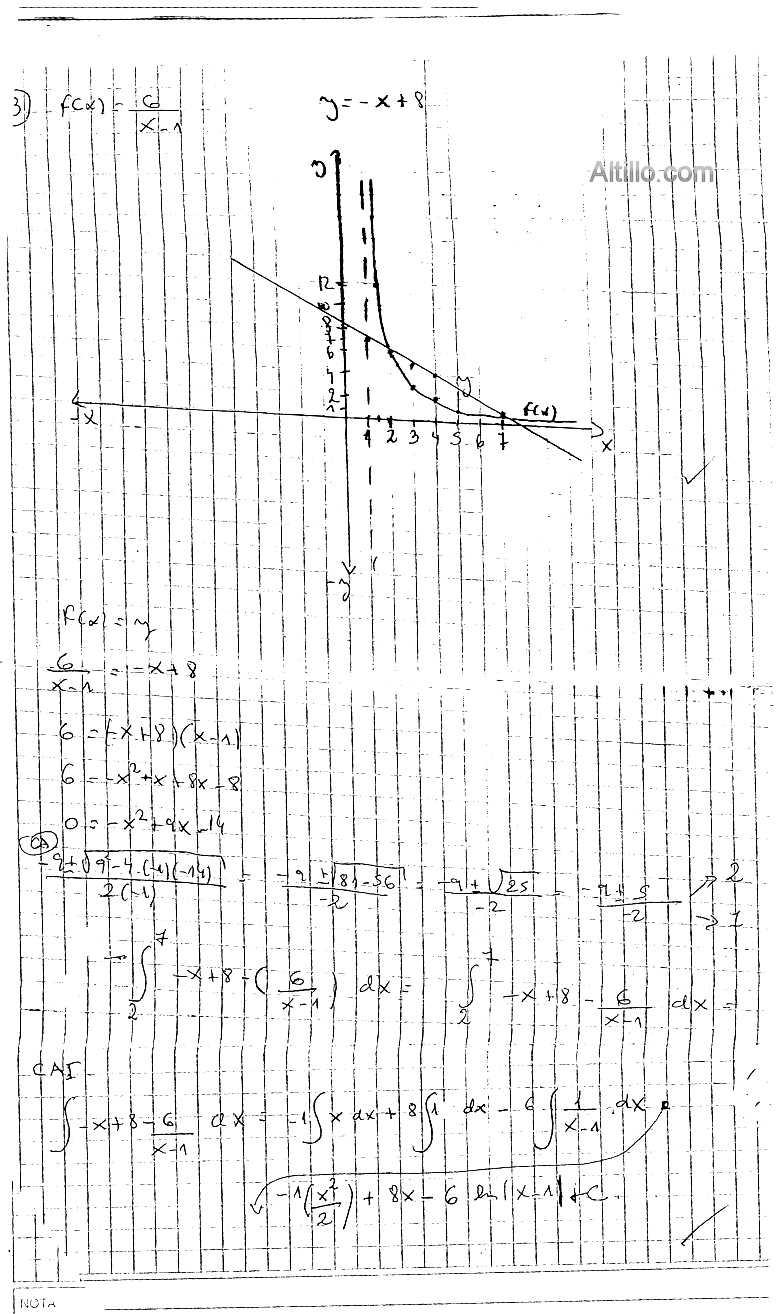 3) f(x) = 6/(x-1)    y = -x+8
Altillo.com
y
12
8
7
6
4
2
1
y
f(x)
-x    1 2 3 4 5 6 7    x
-y
f(x) = y
6/(x-1) = -x+8
6 = (-x+8)(x-1)
6 = -x²+x+8x-8
0 = -x²+9x-14
(-9±√(9²-4.(-1)(-14)))/(2(-1)) = (-9±√(81-56))/(-2) = (-9±√25)/(-2) = (-9±5)/(-2) → 2
→ 7
→ ∫₂⁷ -x+8-(6/(x-1)) dx = ∫₂⁷ -x+8-6/(x-1) dx =
CAI
∫ -x+8-6/(x-1) dx = -1∫x dx + 8∫1 dx - 6∫1/(x-1) dx
-1(x²/2) + 8x - 6 ln|x-1| + C.
NOTA